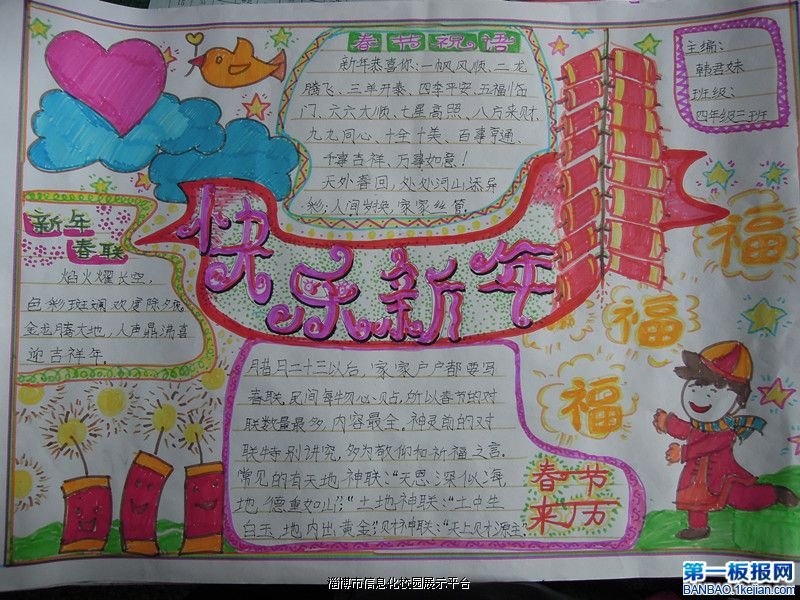 春节祝语
新年恭喜你:一帆风顺、二龙
腾飞、三羊开泰、四季平安、五福临
门、六六大顺、七星高照、八方来财、
九九同心、十全十美、百事亨通、
千事吉祥、万事如意!
天外春回,处处河山添异
彩;人间岁换,家家丝管
主编:
韩君妹
班级:
四年级三班
新年
春联
焰火耀长空,
色彩斑斓欢度除夕夜
金龙腾大地,人声鼎沸喜
迎吉祥年。
快乐新年
福
福
福
腊月二十三以后,家家户户都要写
春联,民间每物必贴,所以春节的对
联数量最多,内容最全。神灵前的对
联特别讲究,多为敬仰和祈福之言。
常见的有天地神联:“天恩深似海
地德重如山;”土地神联:“土中生
白玉,地内出黄金;”财神联:“天上财源主
春节
来历
淄博市信息化校园展示平台
第一板报网
BANBAO.1kejian.com